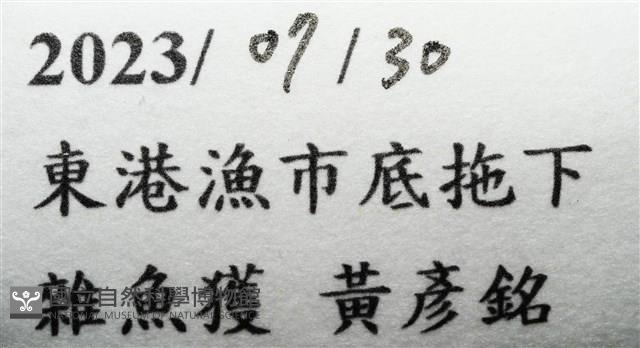 2023/ 07 / 30
東港漁市底拖下
雜魚獲 黃彥銘
國立自然科學博物館
NATIONAL MUSEUM OF NATURAL SCIENCE